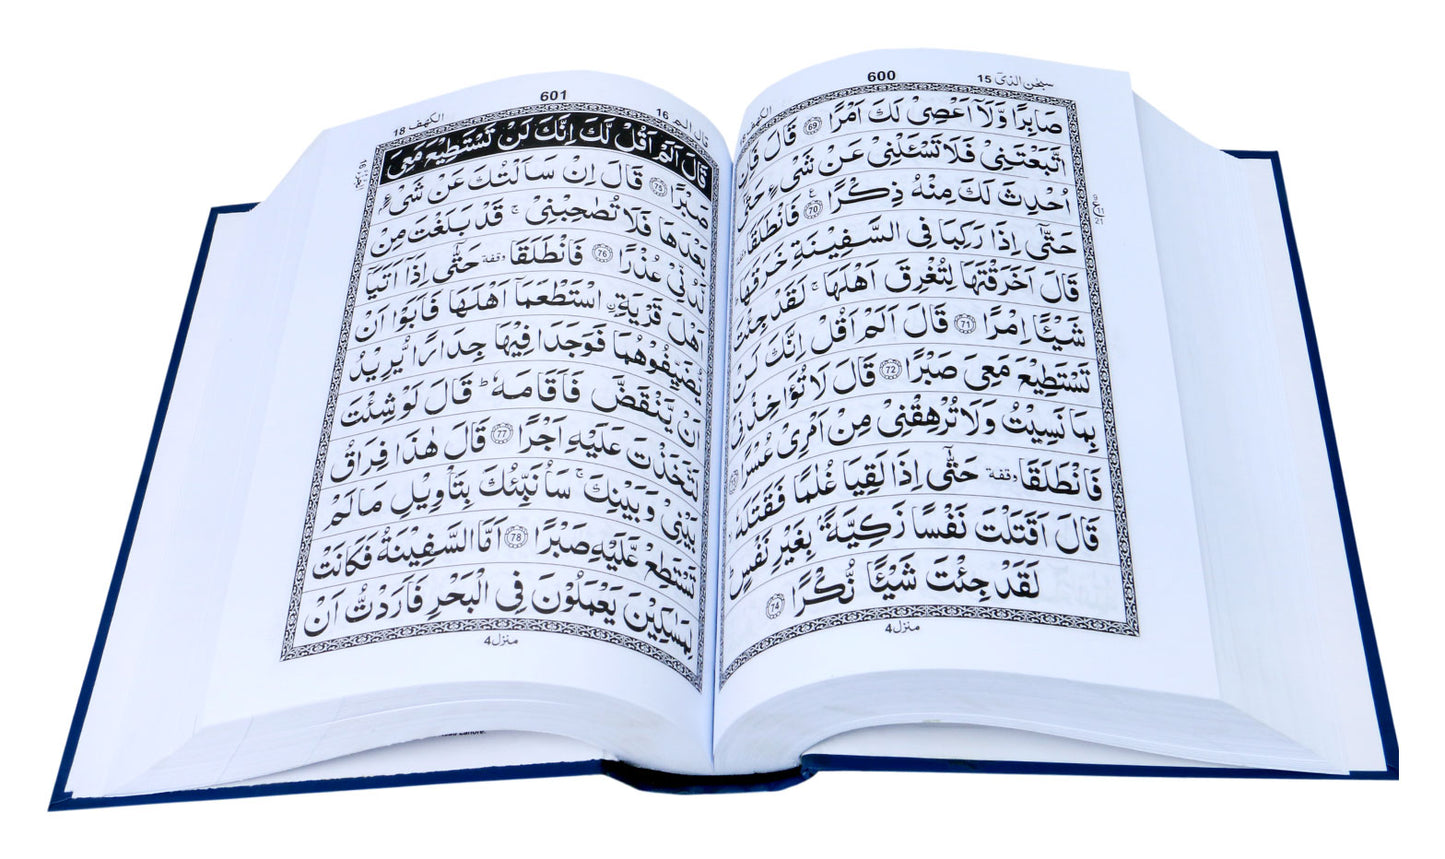 600
سبحٰن الذیٓ 15
الكهف
صَابِرًا وَّلَآ اَعْصِیْ لَكَ اَمْرًا 69 قَالَ فَاِنِ
اتَّبَعْتَنِیْ فَلَا تَسْـَٔلْنِیْ عَنْ شَیْءٍ حَتّٰۤی
اُحْدِثَ لَكَ مِنْهُ ذِكْرًا ع 70 فَانْطَلَقَا
حَتّٰۤی اِذَا رَكِبَا فِی السَّفِیْنَةِ خَرَقَهَا
قَالَ اَخَرَقْتَهَا لِتُغْرِقَ اَهْلَهَا ۚ لَقَدْ جِئْتَ
شَیْـًٔا اِمْرًا 71 قَالَ اَلَمْ اَقُلْ اِنَّكَ لَنْ
تَسْتَطِیْعَ مَعِیَ صَبْرًا 72 قَالَ لَا تُؤَاخِذْنِیْ
بِمَا نَسِیْتُ وَلَا تُرْهِقْنِیْ مِنْ اَمْرِیْ عُسْرًا
فَانْطَلَقَا وقفة حَتّٰۤی اِذَا لَقِیَا غُلٰمًا فَقَتَلَهٗ
قَالَ اَقَتَلْتَ نَفْسًا زَكِیَّةًۢ بِغَیْرِ نَفْسٍ
لَقَدْ جِئْتَ شَیْـًٔا نُّكْرًا 74
منزل 4
601
قال الم 16
الكهف 18
قَالَ اَلَمْ اَقُلْ لَّكَ اِنَّكَ لَنْ تَسْتَطِیْعَ مَعِیَ
صَبْرًا 75 قَالَ اِنْ سَاَلْتُكَ عَنْ شَیْءٍۭ
بَعْدَهَا فَلَا تُصٰحِبْنِیْ ۚ قَدْ بَلَغْتَ مِنْ
لَّدُنِّیْ عُذْرًا 76 فَانْطَلَقَا وقفة حَتّٰۤی اِذَاۤ اَتَیَاۤ
اَهْلَ قَرْیَةِ ِۨاسْتَطْعَمَاۤ اَهْلَهَا فَاَبَوْا اَنْ
یُّضَیِّفُوْهُمَا فَوَجَدَا فِیْهَا جِدَارًا یُّرِیْدُ
اَنْ یَّنْقَضَّ فَاَقَامَهٗ ؕ قَالَ لَوْ شِئْتَ
لَتَّخَذْتَ عَلَیْهِ اَجْرًا 77 قَالَ هٰذَا فِرَاقُ
بَیْنِیْ وَبَیْنِكَ ۚ سَاُنَبِّئُكَ بِتَاْوِیْلِ مَا لَمْ
تَسْتَطِعْ عَّلَیْهِ صَبْرًا 78 اَمَّا السَّفِیْنَةُ فَكَانَتْ
لِمَسٰكِیْنَ یَعْمَلُوْنَ فِی الْبَحْرِ فَاَرَدْتُّ اَنْ
منزل 4